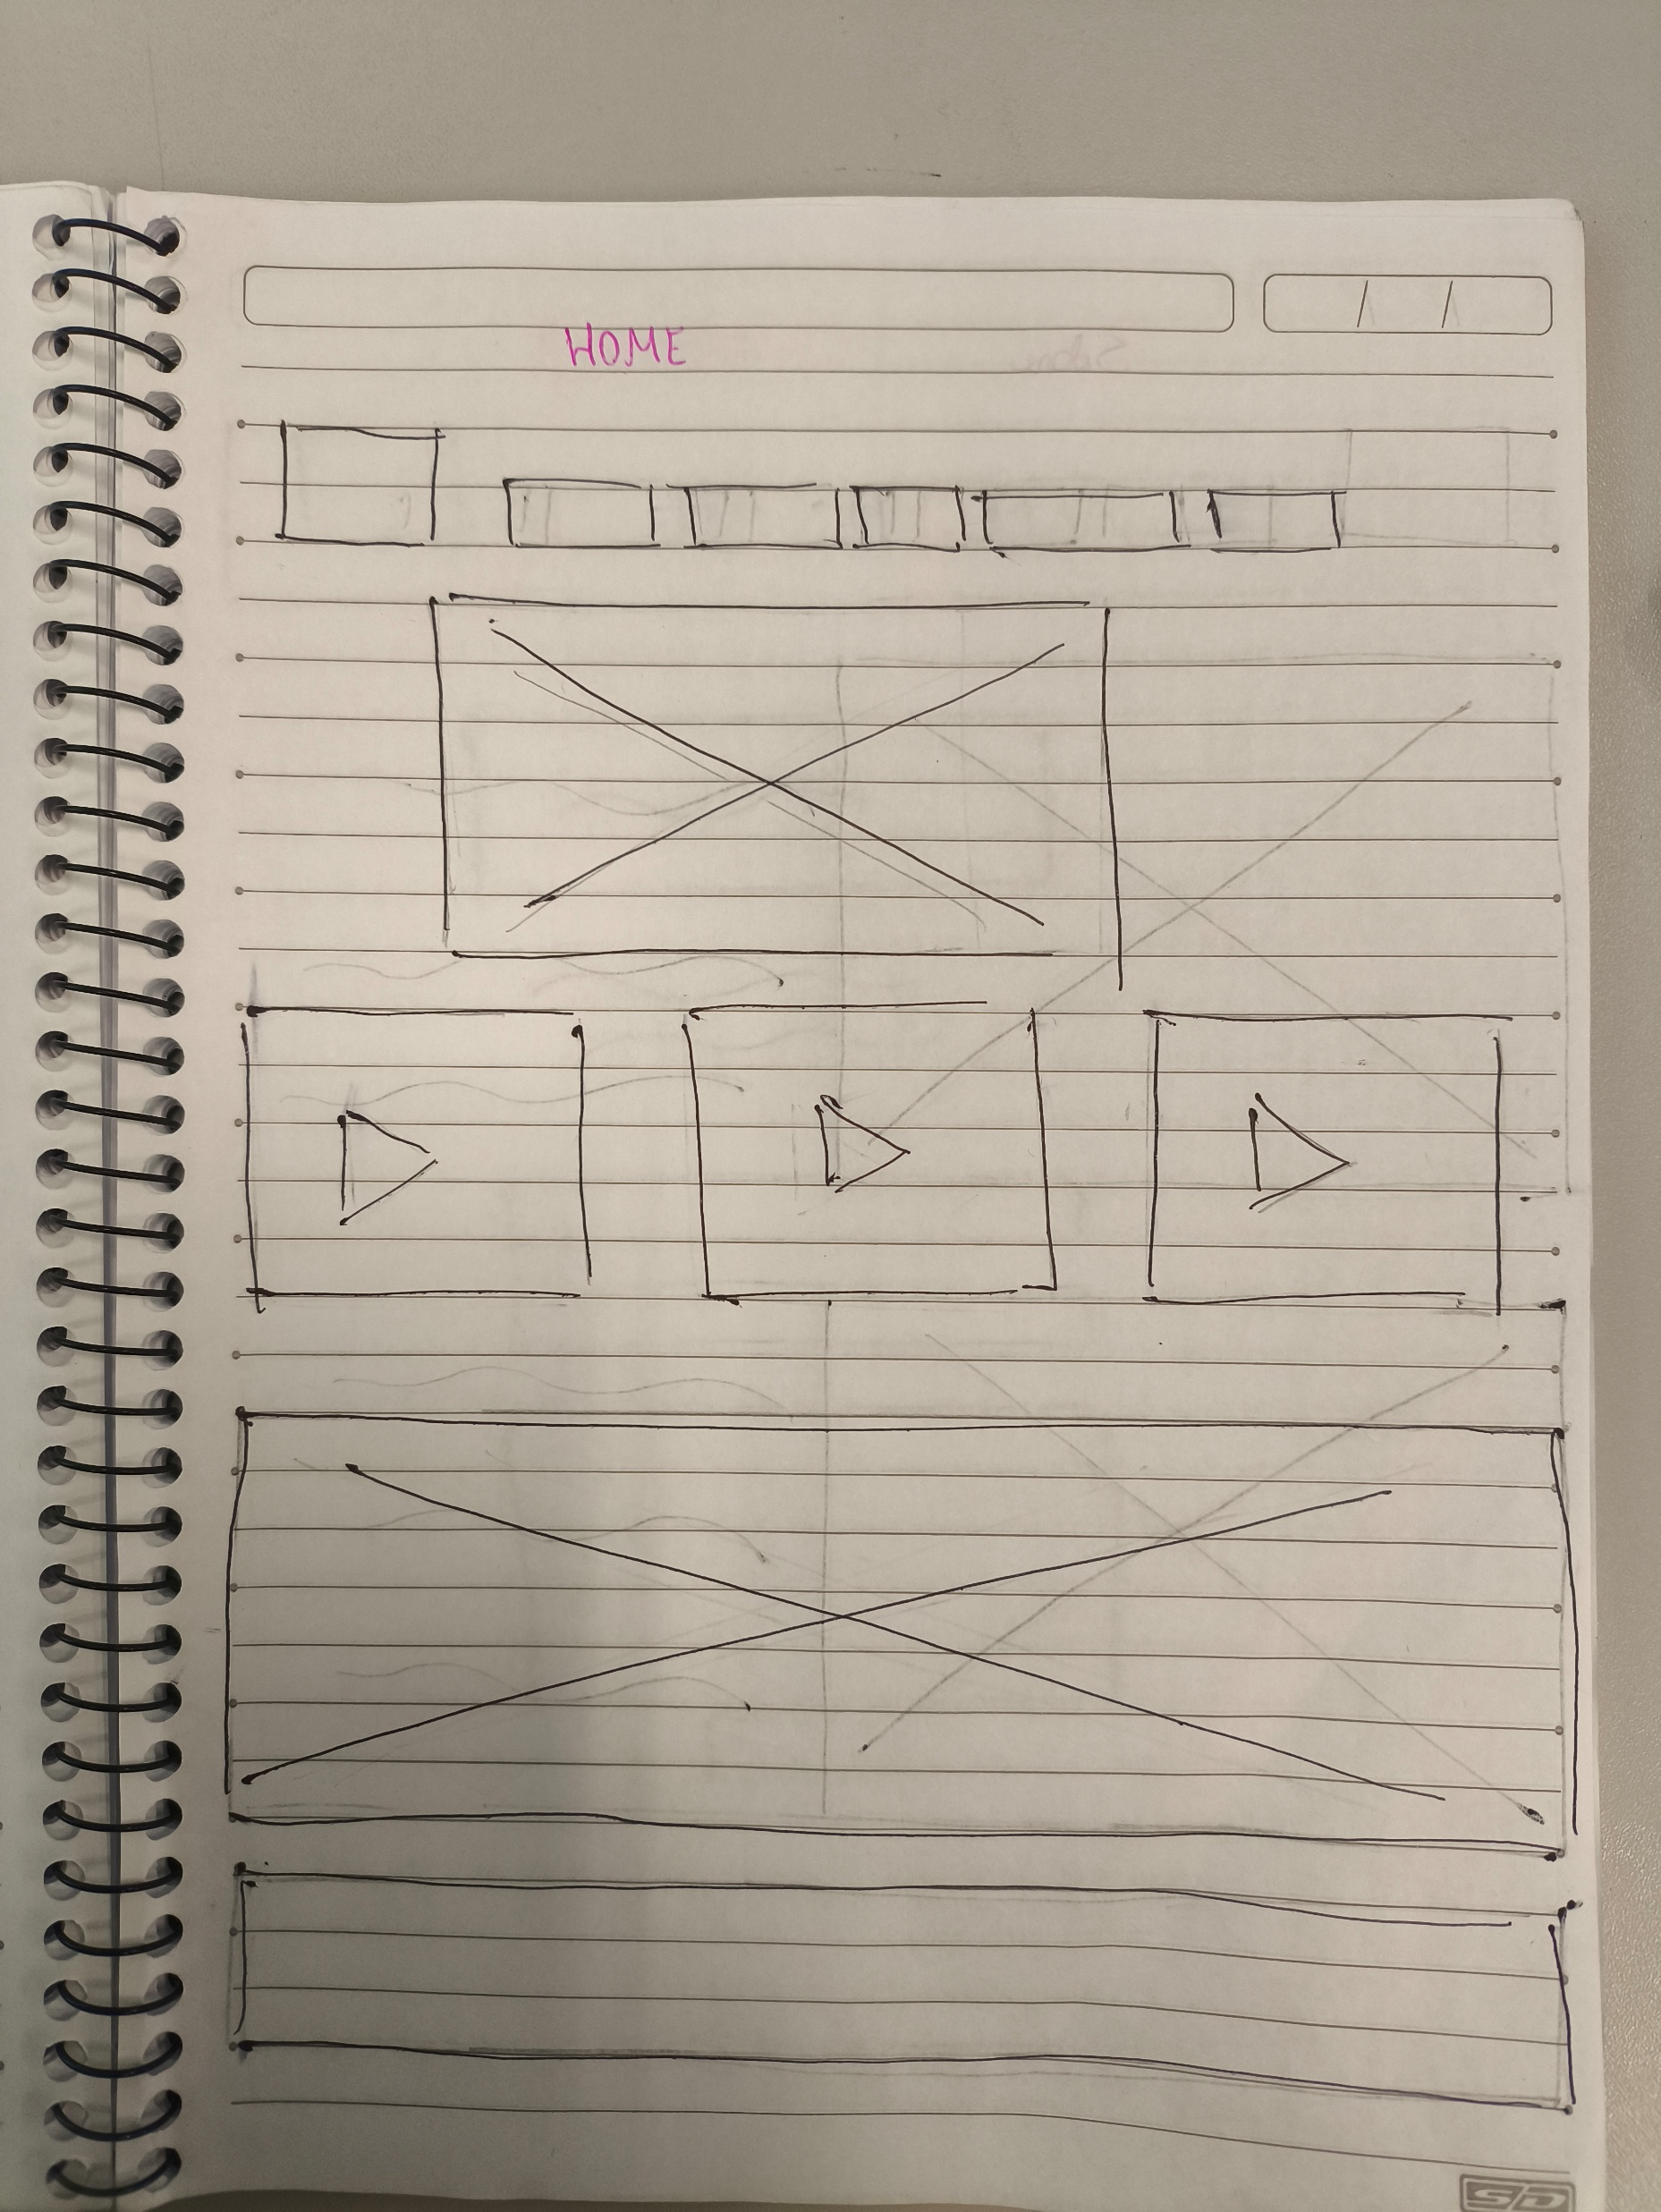 HOME
/ /
SD